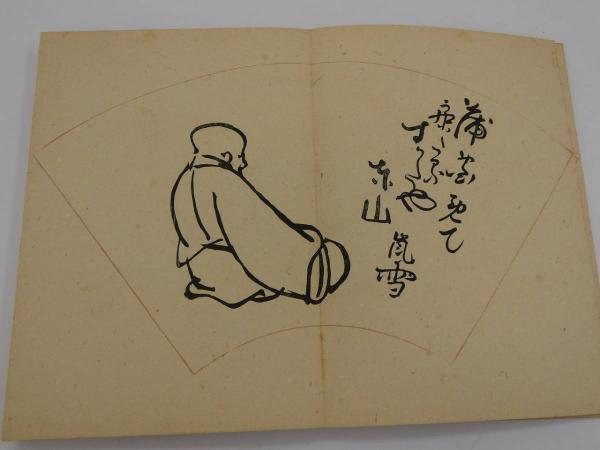 蒲団着て
寝たる
すがたや
東山
嵐雪